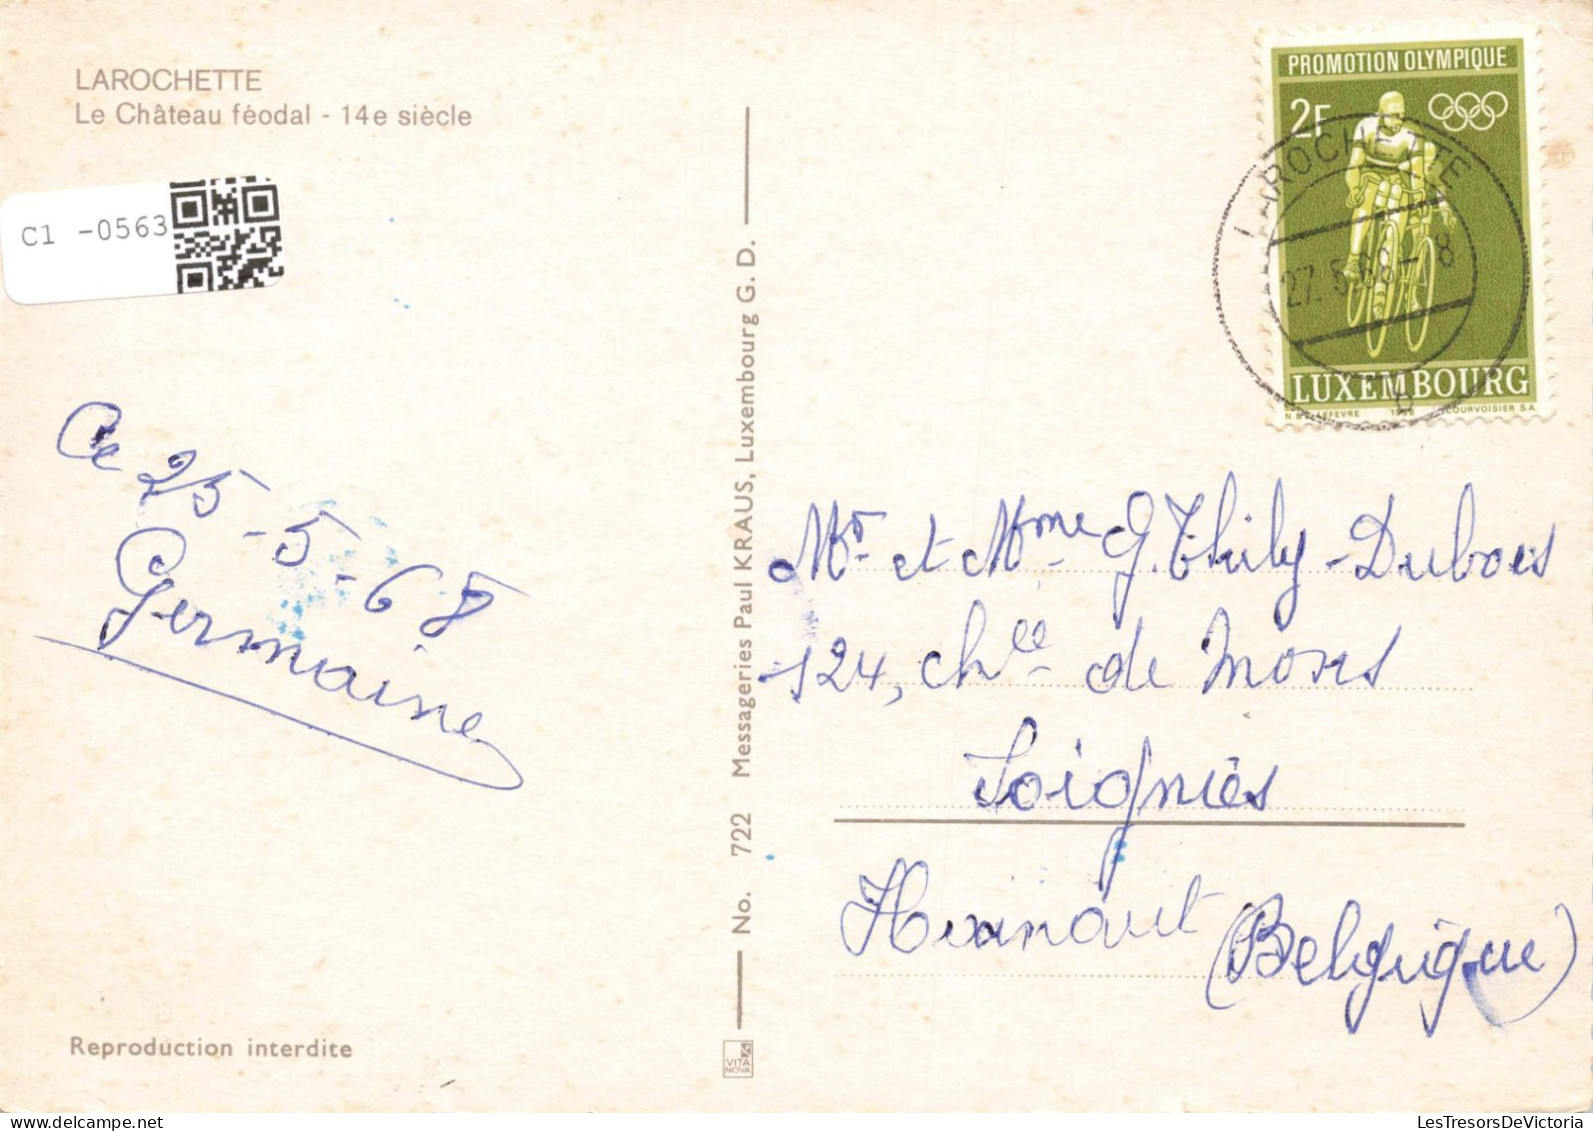 LAROCHETTE
Le Château féodal - 14e siècle
C1 -0563
PROMOTION OLYMPIQUE
2F
LAROCHETTE
27.5.68 - 8
b
LUXEMBOURG
1968 COURVOISIER S.A.
Ce 25-5-68
Germaine
No. 722 Messageries Paul KRAUS, Luxembourg G. D.
Mr. et Mme G. Thily-Dubois
124, chée de Mons
Soignies
Hainaut (Belgique)
Reproduction interdite
VITA
NOVA
LesTresorsDeVictoria